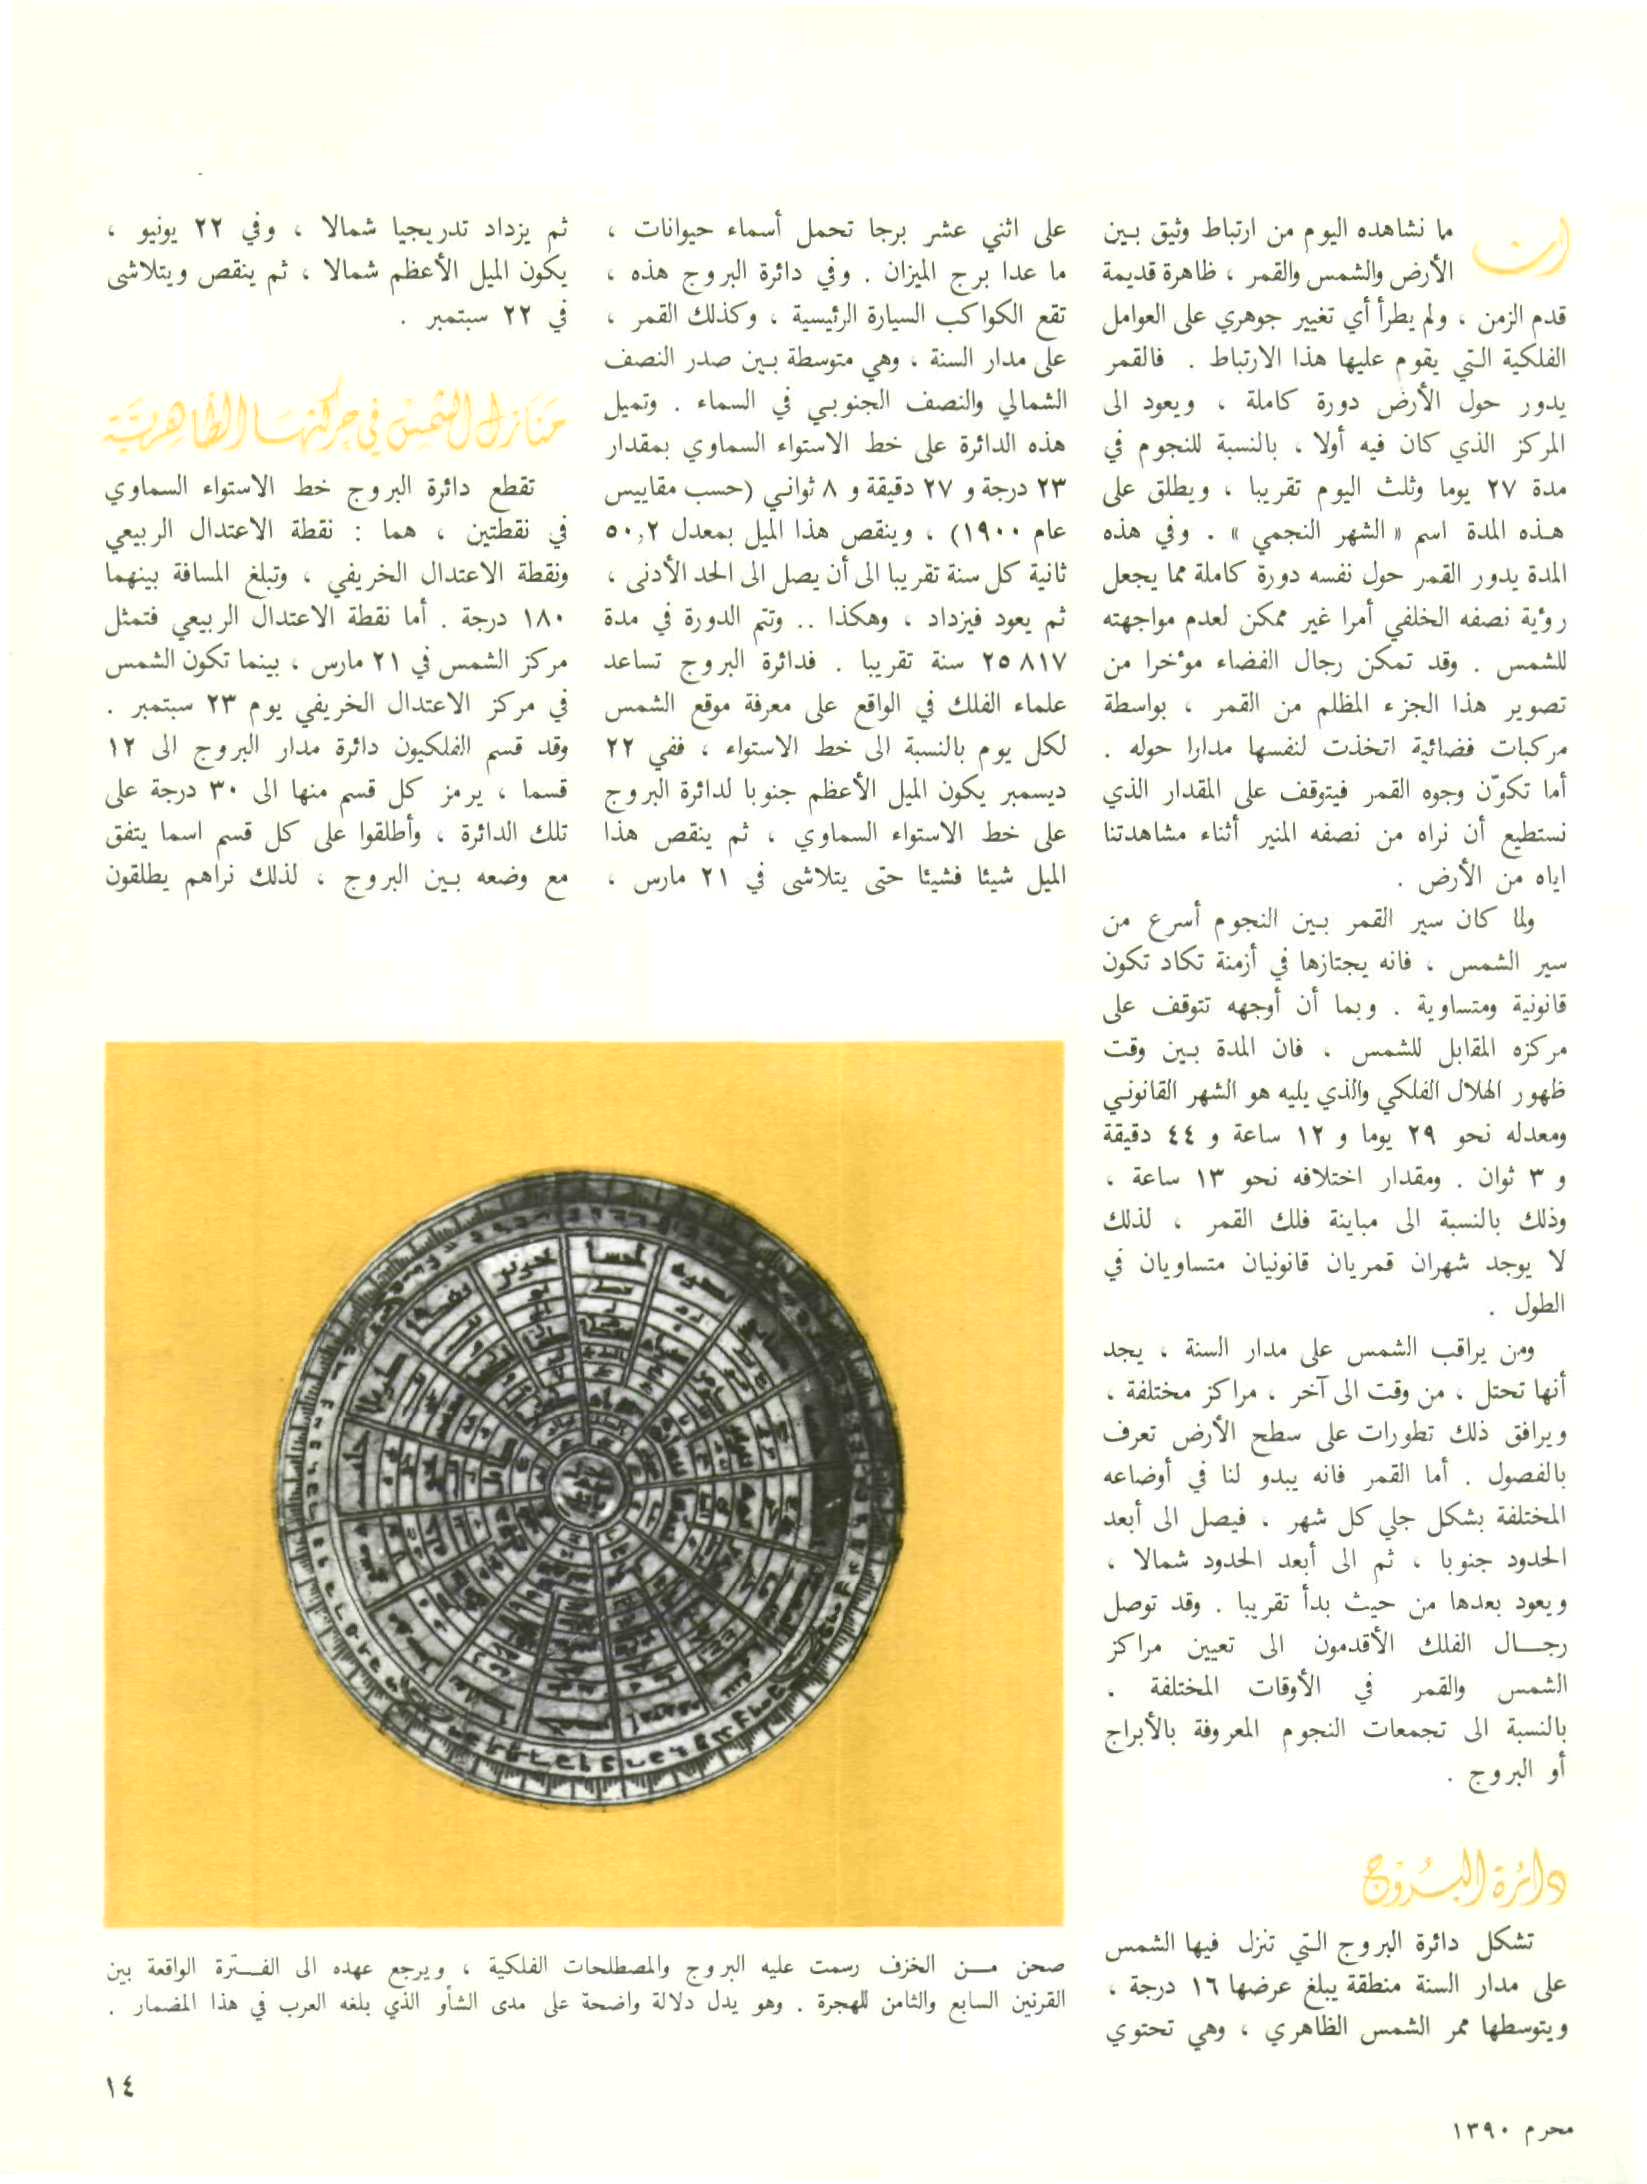 ان ما نشاهده اليوم من ارتباط وثيق بين
الأرض والشمس والقمر ، ظاهرة قديمة
قدم الزمن ، ولم يطرأ أي تغيير جوهري على العوامل
الفلكية التي يقوم عليها هذا الارتباط . فالقمر
يدور حول الأرض دورة كاملة ، ويعود الى
المركز الذي كان فيه أولا ، بالنسبة للنجوم في
مدة ٢٧ يوما وثلث اليوم تقريبا ، ويطلق على
هذه المدة اسم « الشهر النجمي » . وفي هذه
المدة يدور القمر حول نفسه دورة كاملة مما يجعل
رؤية نصفه الخلفي أمرا غير ممكن لعدم مواجهته
للشمس . وقد تمكن رجال الفضاء مؤخرا من
تصوير هذا الجزء المظلم من القمر ، بواسطة
مركبات فضائية اتخذت لنفسها مدارا حوله .
أما تكوّن وجوه القمر فيتوقف على المقدار الذي
نستطيع أن نراه من نصفه المنير أثناء مشاهدتنا
اياه من الأرض .
ولما كان سير القمر بين النجوم أسرع من
سير الشمس ، فانه يجتازها في أزمنة تكاد تكون
قانونية ومتساوية . وبما أن أوجهه تتوقف على
مركزه المقابل للشمس ، فان المدة بين وقت
ظهور الهلال الفلكي والذي يليه هو الشهر القانوني
ومعدله نحو ٢٩ يوما و ١٢ ساعة و ٤٤ دقيقة
و ٣ ثوان . ومقدار اختلافه نحو ١٣ ساعة ،
وذلك بالنسبة الى مباينة فلك القمر ، لذلك
لا يوجد شهران قمريان قانونيان متساويان في
الطول .
ومن يراقب الشمس على مدار السنة ، يجد
أنها تحتل ، من وقت الى آخر ، مراكز مختلفة ،
ويرافق ذلك تطورات على سطح الأرض تعرف
بالفصول . أما القمر فانه يبدو لنا في أوضاعه
المختلفة بشكل جلي كل شهر ، فيصل الى أبعد
الحدود جنوبا ، ثم الى أبعد الحدود شمالا ،
ويعود بعدها من حيث بدأ تقريبا . وقد توصل
رجال الفلك الأقدمون الى تعيين مراكز
الشمس والقمر في الأوقات المختلفة .
بالنسبة الى تجمعات النجوم المعروفة بالأبراج
أو البروج .
دائرة البروج
تشكل دائرة البروج التي تنزل فيها الشمس
على مدار السنة منطقة يبلغ عرضها ١٦ درجة ،
ويتوسطها ممر الشمس الظاهري ، وهي تحتوي
على اثني عشر برجا تحمل أسماء حيوانات ،
ما عدا برج الميزان . وفي دائرة البروج هذه ،
تقع الكواكب السيارة الرئيسية ، وكذلك القمر ،
على مدار السنة ، وهي متوسطة بين صدر النصف
الشمالي والنصف الجنوبي في السماء . وتميل
هذه الدائرة على خط الاستواء السماوي بمقدار
٢٣ درجة و ٢٧ دقيقة و ٨ ثواني (حسب مقاييس
عام ١٩٠٠) ، وينقص هذا الميل بمعدل ٥٠,٢
ثانية كل سنة تقريبا الى أن يصل الى الحد الأدنى ،
ثم يعود فيزداد ، وهكذا .. وتتم الدورة في مدة
٢٥٨١٧ سنة تقريبا . فدائرة البروج تساعد
علماء الفلك في الواقع على معرفة موقع الشمس
لكل يوم بالنسبة الى خط الاستواء ، ففي ٢٢
ديسمبر يكون الميل الأعظم جنوبا لدائرة البروج
على خط الاستواء السماوي ، ثم ينقص هذا
الميل شيئا فشيئا حتى يتلاشى في ٢١ مارس ،
ثم يزداد تدريجيا شمالا ، وفي ٢٢ يونيو ،
يكون الميل الأعظم شمالا ، ثم ينقص ويتلاشى
في ٢٢ سبتمبر .
منازل الشمس في حركتها الظاهرية
تقطع دائرة البروج خط الاستواء السماوي
في نقطتين ، هما : نقطة الاعتدال الربيعي
ونقطة الاعتدال الخريفي ، وتبلغ المسافة بينهما
١٨٠ درجة . أما نقطة الاعتدال الربيعي فتمثل
مركز الشمس في ٢١ مارس ، بينما تكون الشمس
في مركز الاعتدال الخريفي يوم ٢٣ سبتمبر .
وقد قسم الفلكيون دائرة مدار البروج الى ١٢
قسما ، يرمز كل قسم منها الى ٣٠ درجة على
تلك الدائرة ، وأطلقوا على كل قسم اسما يتفق
مع وضعه بين البروج ، لذلك نراهم يطلقون
صحن من الخزف رسمت عليه البروج والمصطلحات الفلكية ، ويرجع عهده الى الفترة الواقعة بين
القرنين السابع والثامن للهجرة . وهو يدل دلالة واضحة على مدى الشأو الذي بلغه العرب في هذا المضمار .
١٤
محرم ١٣٩٠